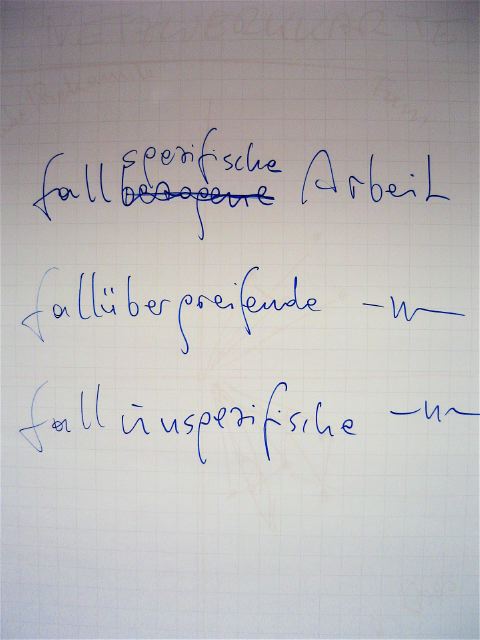 NETZWERKKARTE
spezifische
fall bezogene Arbeit
fallübergreifende -"-
fallunspezifische -"-